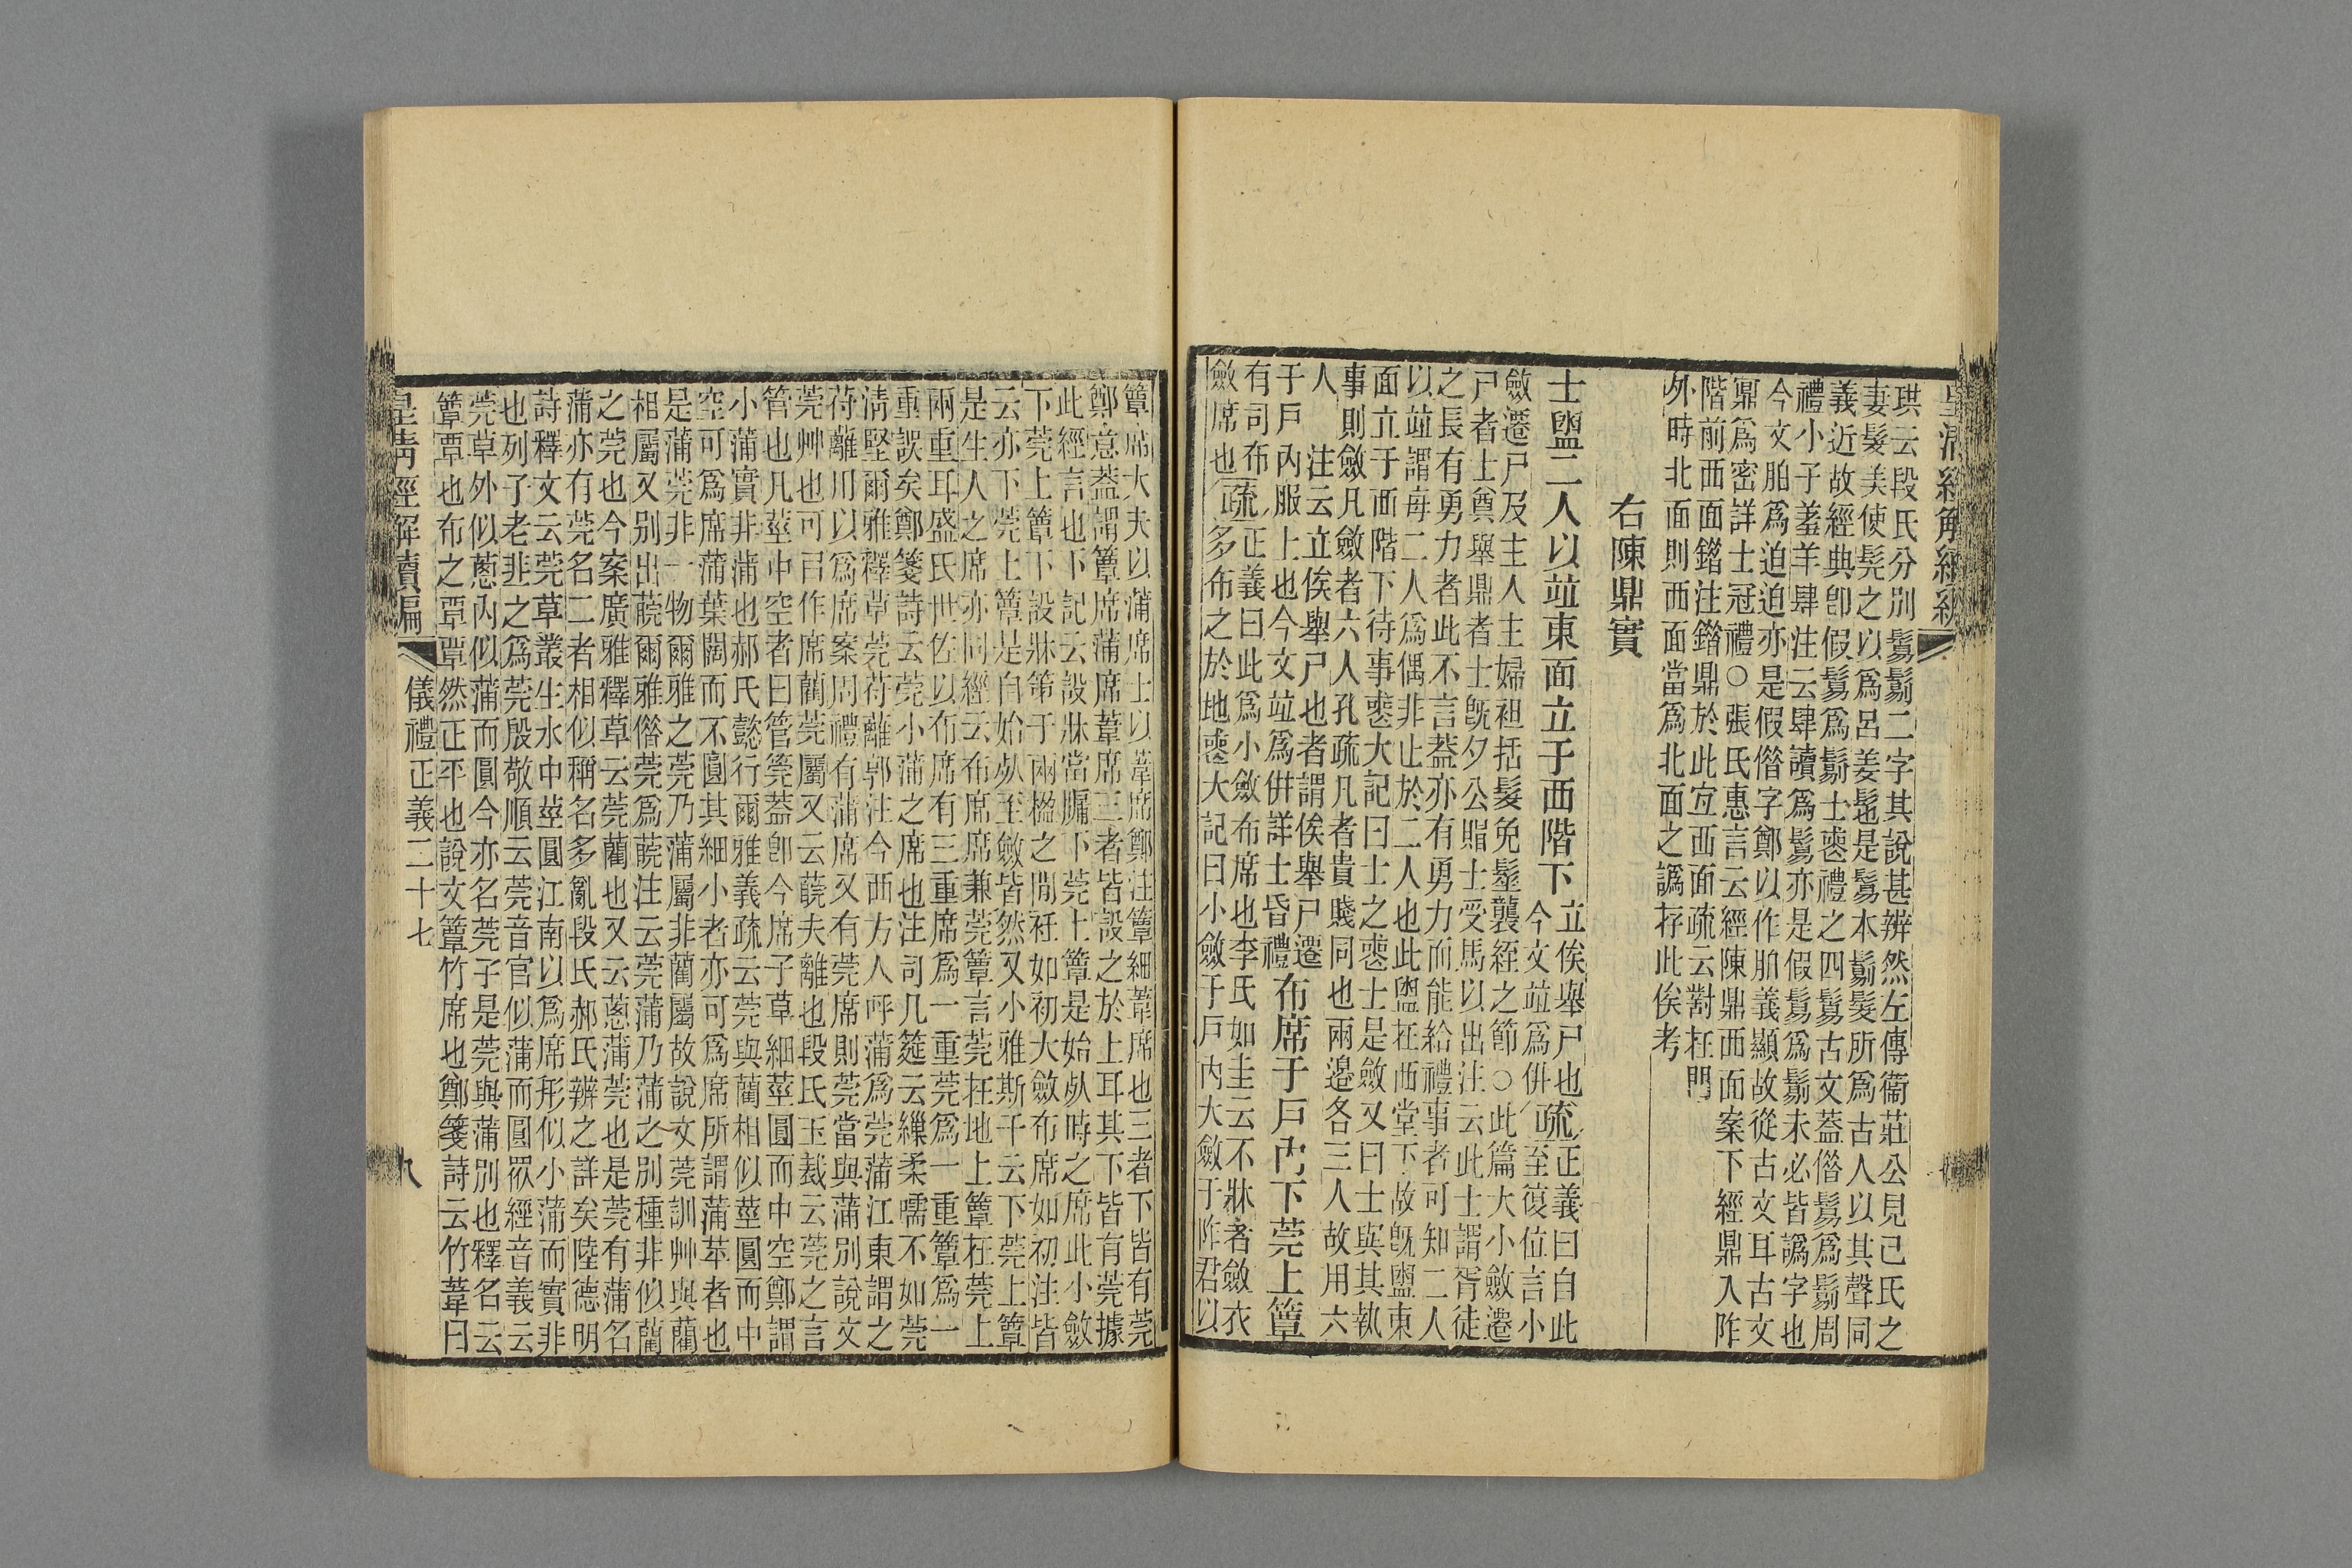 皇清經解續編
珙云段氏分别鬄鬄二字其說甚辨然左傳衞莊公見己氏之
妻髮美使髡之以爲呂姜髢也是鬄本鬄髮所爲古人以其聲同
義近故經典卽假鬄爲鬄士喪禮之四鬄古文蓋僭鬄爲鬄周
禮小子羞羊肆注云肆讀爲鬄亦是假鬄爲鬄未必皆譌字也
今文胉爲迫迫亦是假借字鄭以作胉義顯故從古文耳古文
鼏爲密詳士冠禮○張氏惠言云經陳鼎西面案下經鼎入阼
階前西面錯注錯鼎於此宜西面疏云對在門
外時北面則西面當爲北面之譌存此俟考
右陳鼎實
士盥二人以竝東面立于西階下
立俟舉尸也
今文竝爲倂
疏
正義曰自此
至復位言小
斂遷尸及主人主婦袒括髮免髽襲絰之節○此篇大小斂遷
尸者士奠舉鼎者士既夕公賵士受馬以出注云此士謂胥徒
之長有勇力者此不言蓋亦有勇力而能給禮事者可知二人
以竝謂每二人爲偶非止於二人也此盥在西堂下故既盥東
面立于西階下待事喪大記曰士之喪士是斂又曰士與其執
事則斂凡斂者六人孔疏凡者貴賤同也兩邊各三人故用六
人注云立俟舉尸也者謂俟舉尸遷
于戶內服上也今文竝爲倂詳士昏禮
布席于戶內下莞上簟
有司布
斂席也
疏
正義曰此爲小斂布席也李氏如圭云不牀者斂衣
多布之於地喪大記曰小斂于戶內大斂于阼君以
簟席大夫以蒲席士以葦席鄭注簟細葦席也三者下皆有莞
鄭意蓋謂簟席蒲席葦席三者皆設之於上耳其下皆有莞據
此經言也下記云設牀當牖下莞上簟是始死時之席此小斂
下莞上簟下設牀笫于兩楹之閒衽如初大斂布席如初注皆
云亦下莞上簟是自始死至斂皆然又小雅斯干云下莞上簟
是生人之席亦同經云布席席兼莞簟言莞在地上簟在莞上
兩重耳盛氏世佐以布席有三重席爲一重莞爲一重簟爲一
重誤矣鄭箋詩云莞小蒲之席也注司几筵云繅柔嚅不如莞
淸堅爾雅釋草莞苻蘺郭注今西方人呼蒲爲莞蒲江東謂之
苻蘺用以爲席案周禮有蒲席又有莞席則莞當與蒲别說文
莞艸也可㠯作席藺莞屬又云䕩夫蘺也段氏玉裁云莞之言
管也凡莖中空者曰管莞蓋卽今席子草細莖圓而中空鄭謂
小蒲實非蒲也郝氏懿行爾雅義疏云莞與藺相似莖圓而中
空可爲席蒲葉闊而不圓其細小者亦可爲席所謂蒲苹者也
是蒲莞非一物爾雅之莞乃蒲屬非藺屬故說文莞訓艸與藺
相屬又别出䕩爾雅僭莞爲䕩注云莞蒲乃蒲之别種非似藺
之莞也今案廣雅釋草云莞藺也又云蔥蒲莞也是莞有蒲名
蒲亦有莞名二者相似稱名多亂段氏郝氏辨之詳矣陸德明
詩釋文云莞草叢生水中莖圓江南以爲席形似小蒲而實非
也列子老韭之爲莞殷敬順云莞音官似蒲而圓眾經音義云
莞草外似蔥內似蒲而圓今亦名莞子是莞與蒲别也釋名云
簟覃也布之覃覃然正平也說文簟竹席也鄭箋詩云竹葦曰
皇淸經解續編
儀禮正義二十七
九